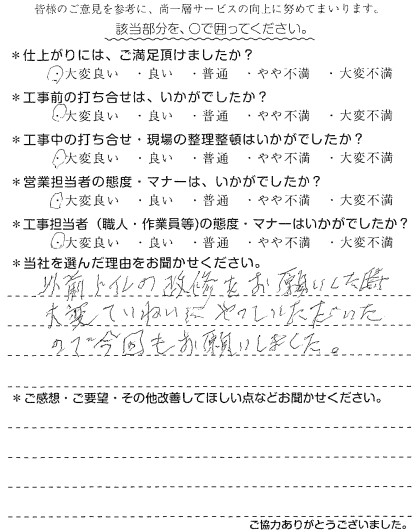 皆様のご意見を参考に、尚一層サービスの向上に努めてまいります。
該当部分を、○で囲ってください。
＊仕上がりには、ご満足頂けましたか？
・大変良い ・良い ・普通 ・やや不満 ・大変不満
＊工事前の打ち合せは、いかがでしたか？
・大変良い ・良い ・普通 ・やや不満 ・大変不満
＊工事中の打ち合せ・現場の整理整頓はいかがでしたか？
・大変良い ・良い ・普通 ・やや不満 ・大変不満
＊営業担当者の態度・マナーは、いかがでしたか？
・大変良い ・良い ・普通 ・やや不満 ・大変不満
＊工事担当者（職人・作業員等)の態度・マナーはいかがでしたか？
・大変良い ・良い ・普通 ・やや不満 ・大変不満
＊当社を選んだ理由をお聞かせください。
以前トイレの改修をお願いした際
大変ていねいにやっていただいた
ので今回もお願いしました。
＊ご感想・ご要望・その他改善してほしい点などお聞かせください。
ご協力ありがとうございました。